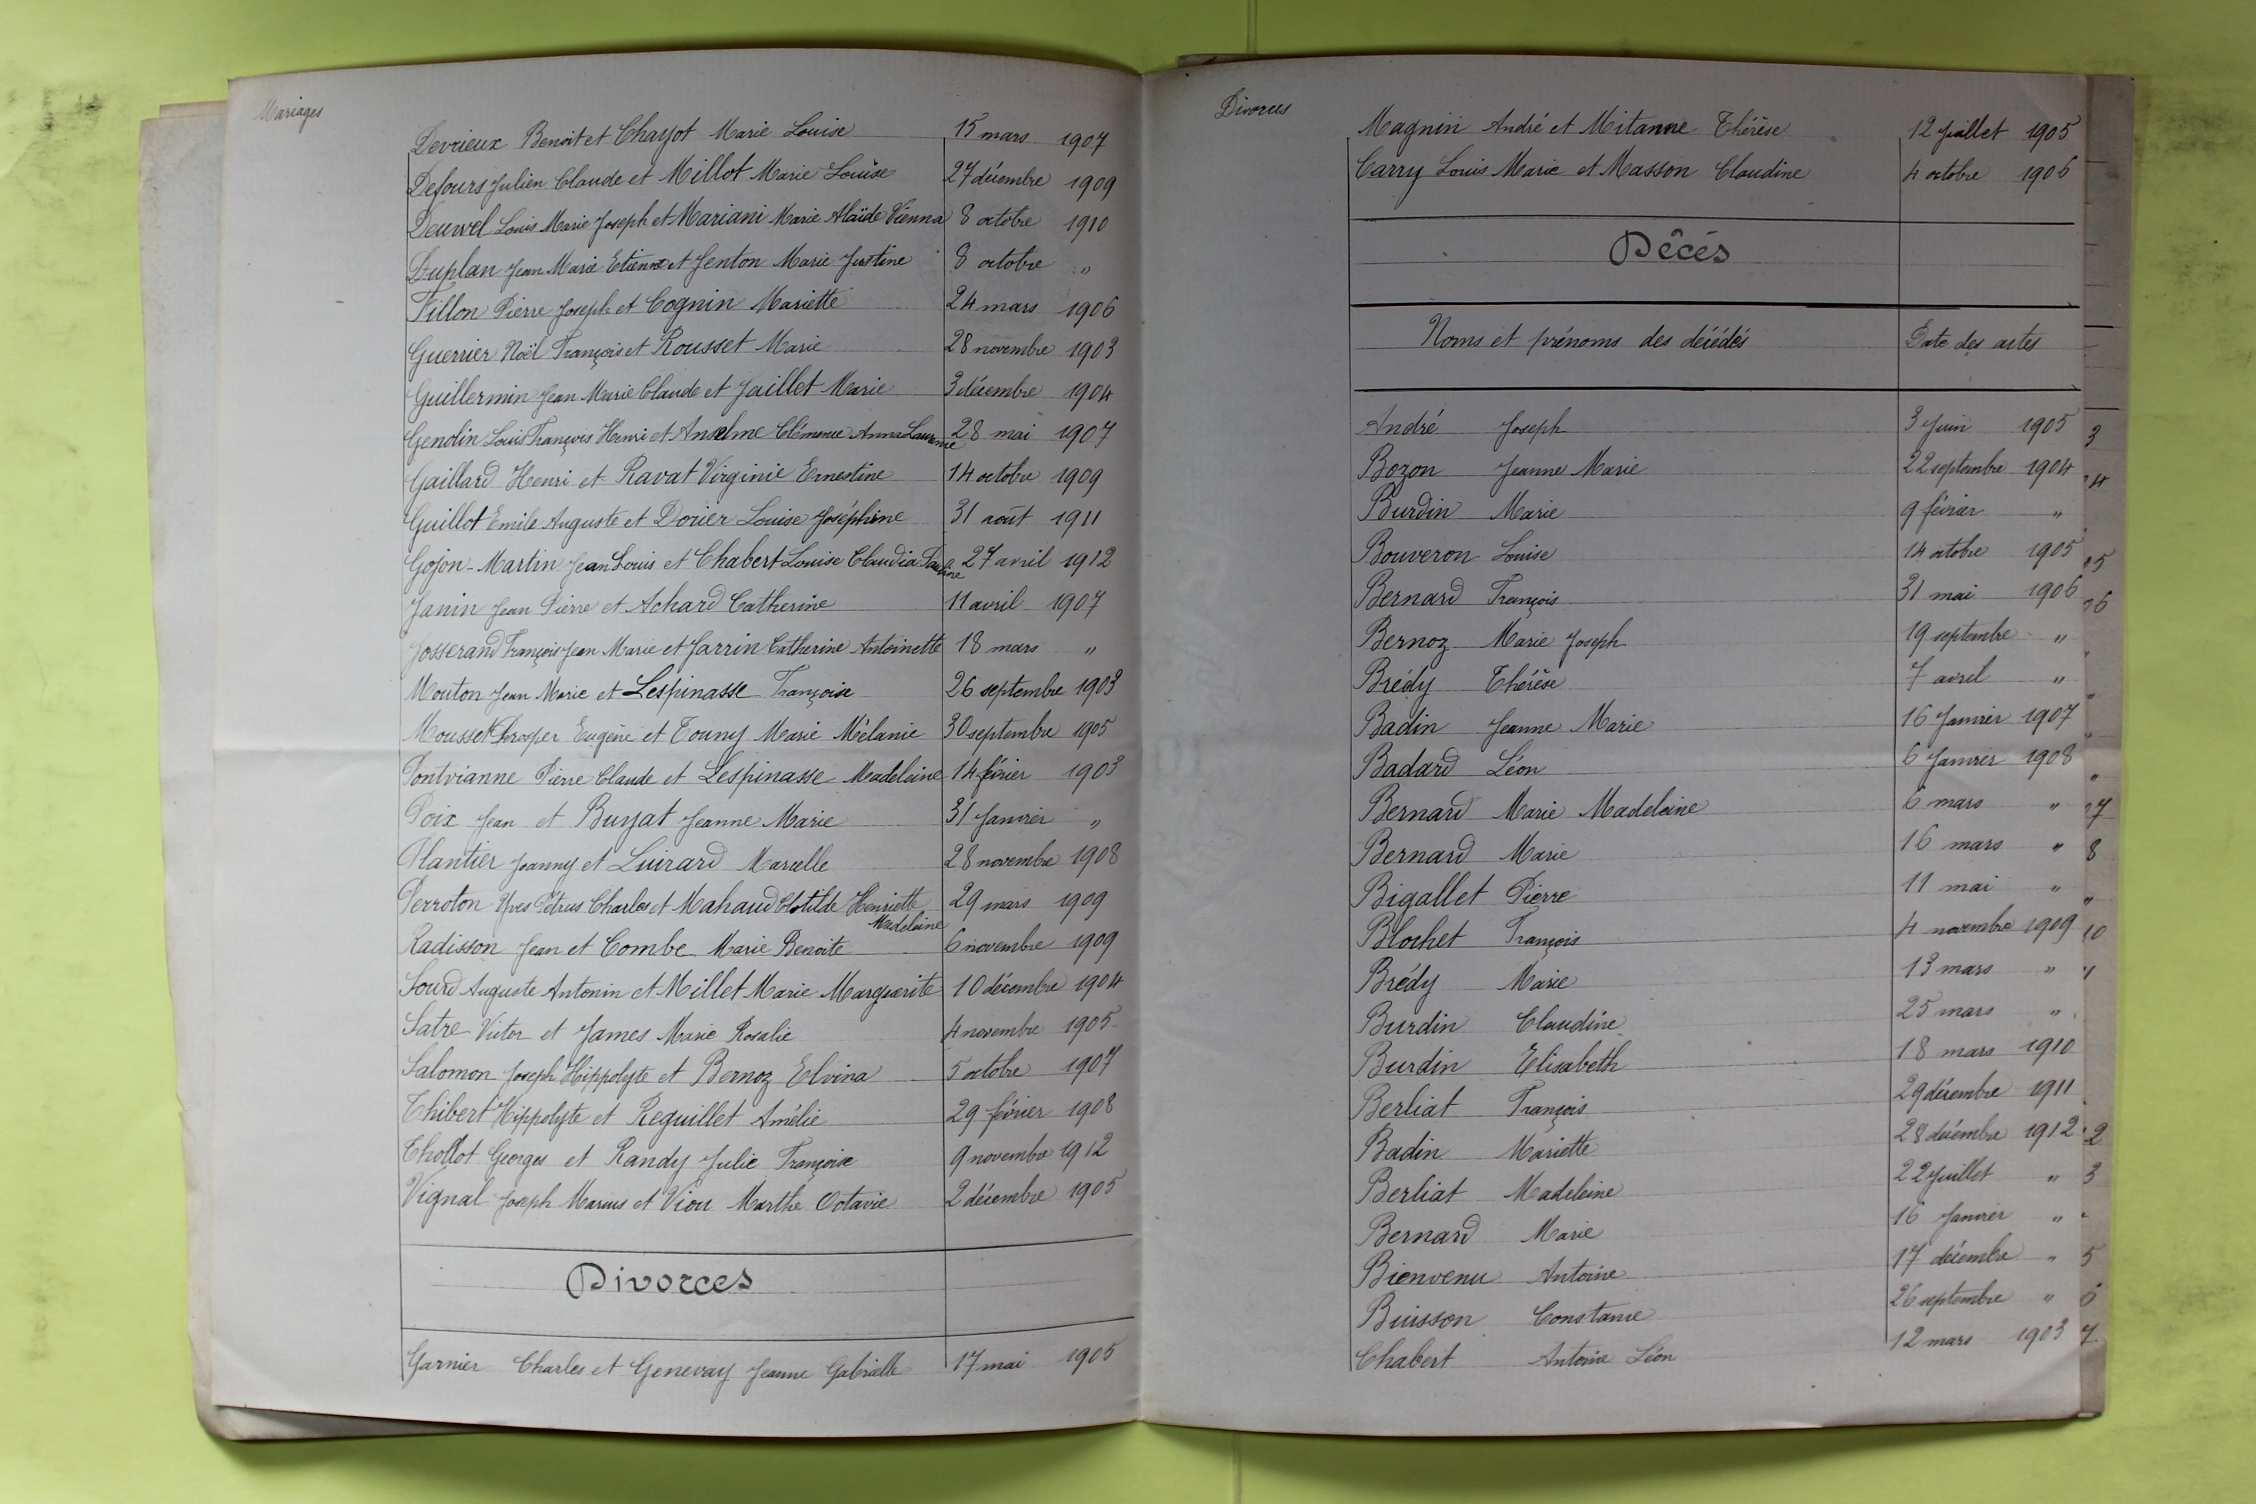 Mariages
Devrieux Benoit et Chayot Marie Louise 15 mars 1907
Defours Julien Claude et Millot Marie Louise 27 décembre 1909
Deuwel Louis Marie Joseph et Mariani Marie Alaïde Vienna 8 octobre 1910
Duplan Jean Marie Etienne et Jenton Marie Justine 8 octobre "
Fillon Pierre Joseph et Cognin Mariette 24 mars 1906
Guerrier Noël François et Rousset Marie 28 novembre 1903
Guillermin Jean Marie Claude et Jaillet Marie 3 décembre 1904
Genolin Louis François Henri et Anselme Clémence Anna Laurence 28 mai 1907
Gaillard Henri et Ravat Virginie Ernestine 14 octobre 1909
Guillot Emile Auguste et Dorier Louise Joséphine 31 août 1911
Gojon-Martin Jean Louis et Chabert Louise Claudia 27 avril 1912
Janin Jean Pierre et Achard Catherine 11 avril 1907
Josserand François Jean Marie et Jarrin Catherine Antoinette 18 mars "
Mouton Jean Marie et Lespinasse Françoise 26 septembre 1903
Mousset Prosper Eugène et Touny Marie Mélanie 30 septembre 1905
Pontvianne Pierre Claude et Lespinasse Madeleine 14 février 1903
Poix Jean et Buyat Jeanne Marie 31 Janvier "
Plantier Joanny et Luirard Marcelle 28 novembre 1908
Perroton Yves Pétrus Charles et Mahaud Clotilde Henriette Madeleine 29 mars 1909
Radisson Jean et Combe Marie Benoite 6 novembre 1909
Sourd Auguste Antonin et Millet Marie Marguerite 10 décembre 1904
Satre Victor et James Marie Rosalie 4 novembre 1905
Salomon Joseph Hippolyte et Bernoz Elvina 5 octobre 1907
Thibert Hippolyte et Reguillet Amélie 29 février 1908
Thollot Georges et Randy Julie Françoise 9 novembre 1912
Vignal Joseph Marius et Viou Marthe Octavie 2 décembre 1905
Divorces
Garnier Charles et Genevay Jeanne Gabrielle 17 mai 1905
Divorces
Magnin André et Mitanne Thérèse 12 Juillet 1905
Carry Louis Marie et Masson Claudine 4 octobre 1906
Décés
Noms et prénoms des décédés Date des actes
André Joseph 3 Juin 1905
Bozon Jeanne Marie 22 septembre 1904
Burdin Marie 9 février "
Bouveron Louise 14 octobre 1905
Bernard François 31 mai 1906
Bernoz Marie Joseph 19 septembre "
Brédy Thérèse 7 avril "
Badin Jeanne Marie 16 Janvier 1907
Badard Léon 6 Janvier 1908
Bernard Marie Madeleine 6 mars "
Bernard Marie 16 mars "
Bigallet Pierre 11 mai "
Blochet François 4 novembre 1909
Brédy Marie 13 mars "
Burdin Claudine 25 mars "
Burdin Elisabeth 18 mars 1910
Berliat François 29 décembre 1911
Badin Mariette 28 décembre 1912
Berliat Madeleine 22 Juillet "
Bernard Marie 16 Janvier "
Bienvenu Antoine 17 décembre "
Buisson Constance 26 septembre "
Chabert Antoine Léon 12 mars 1903